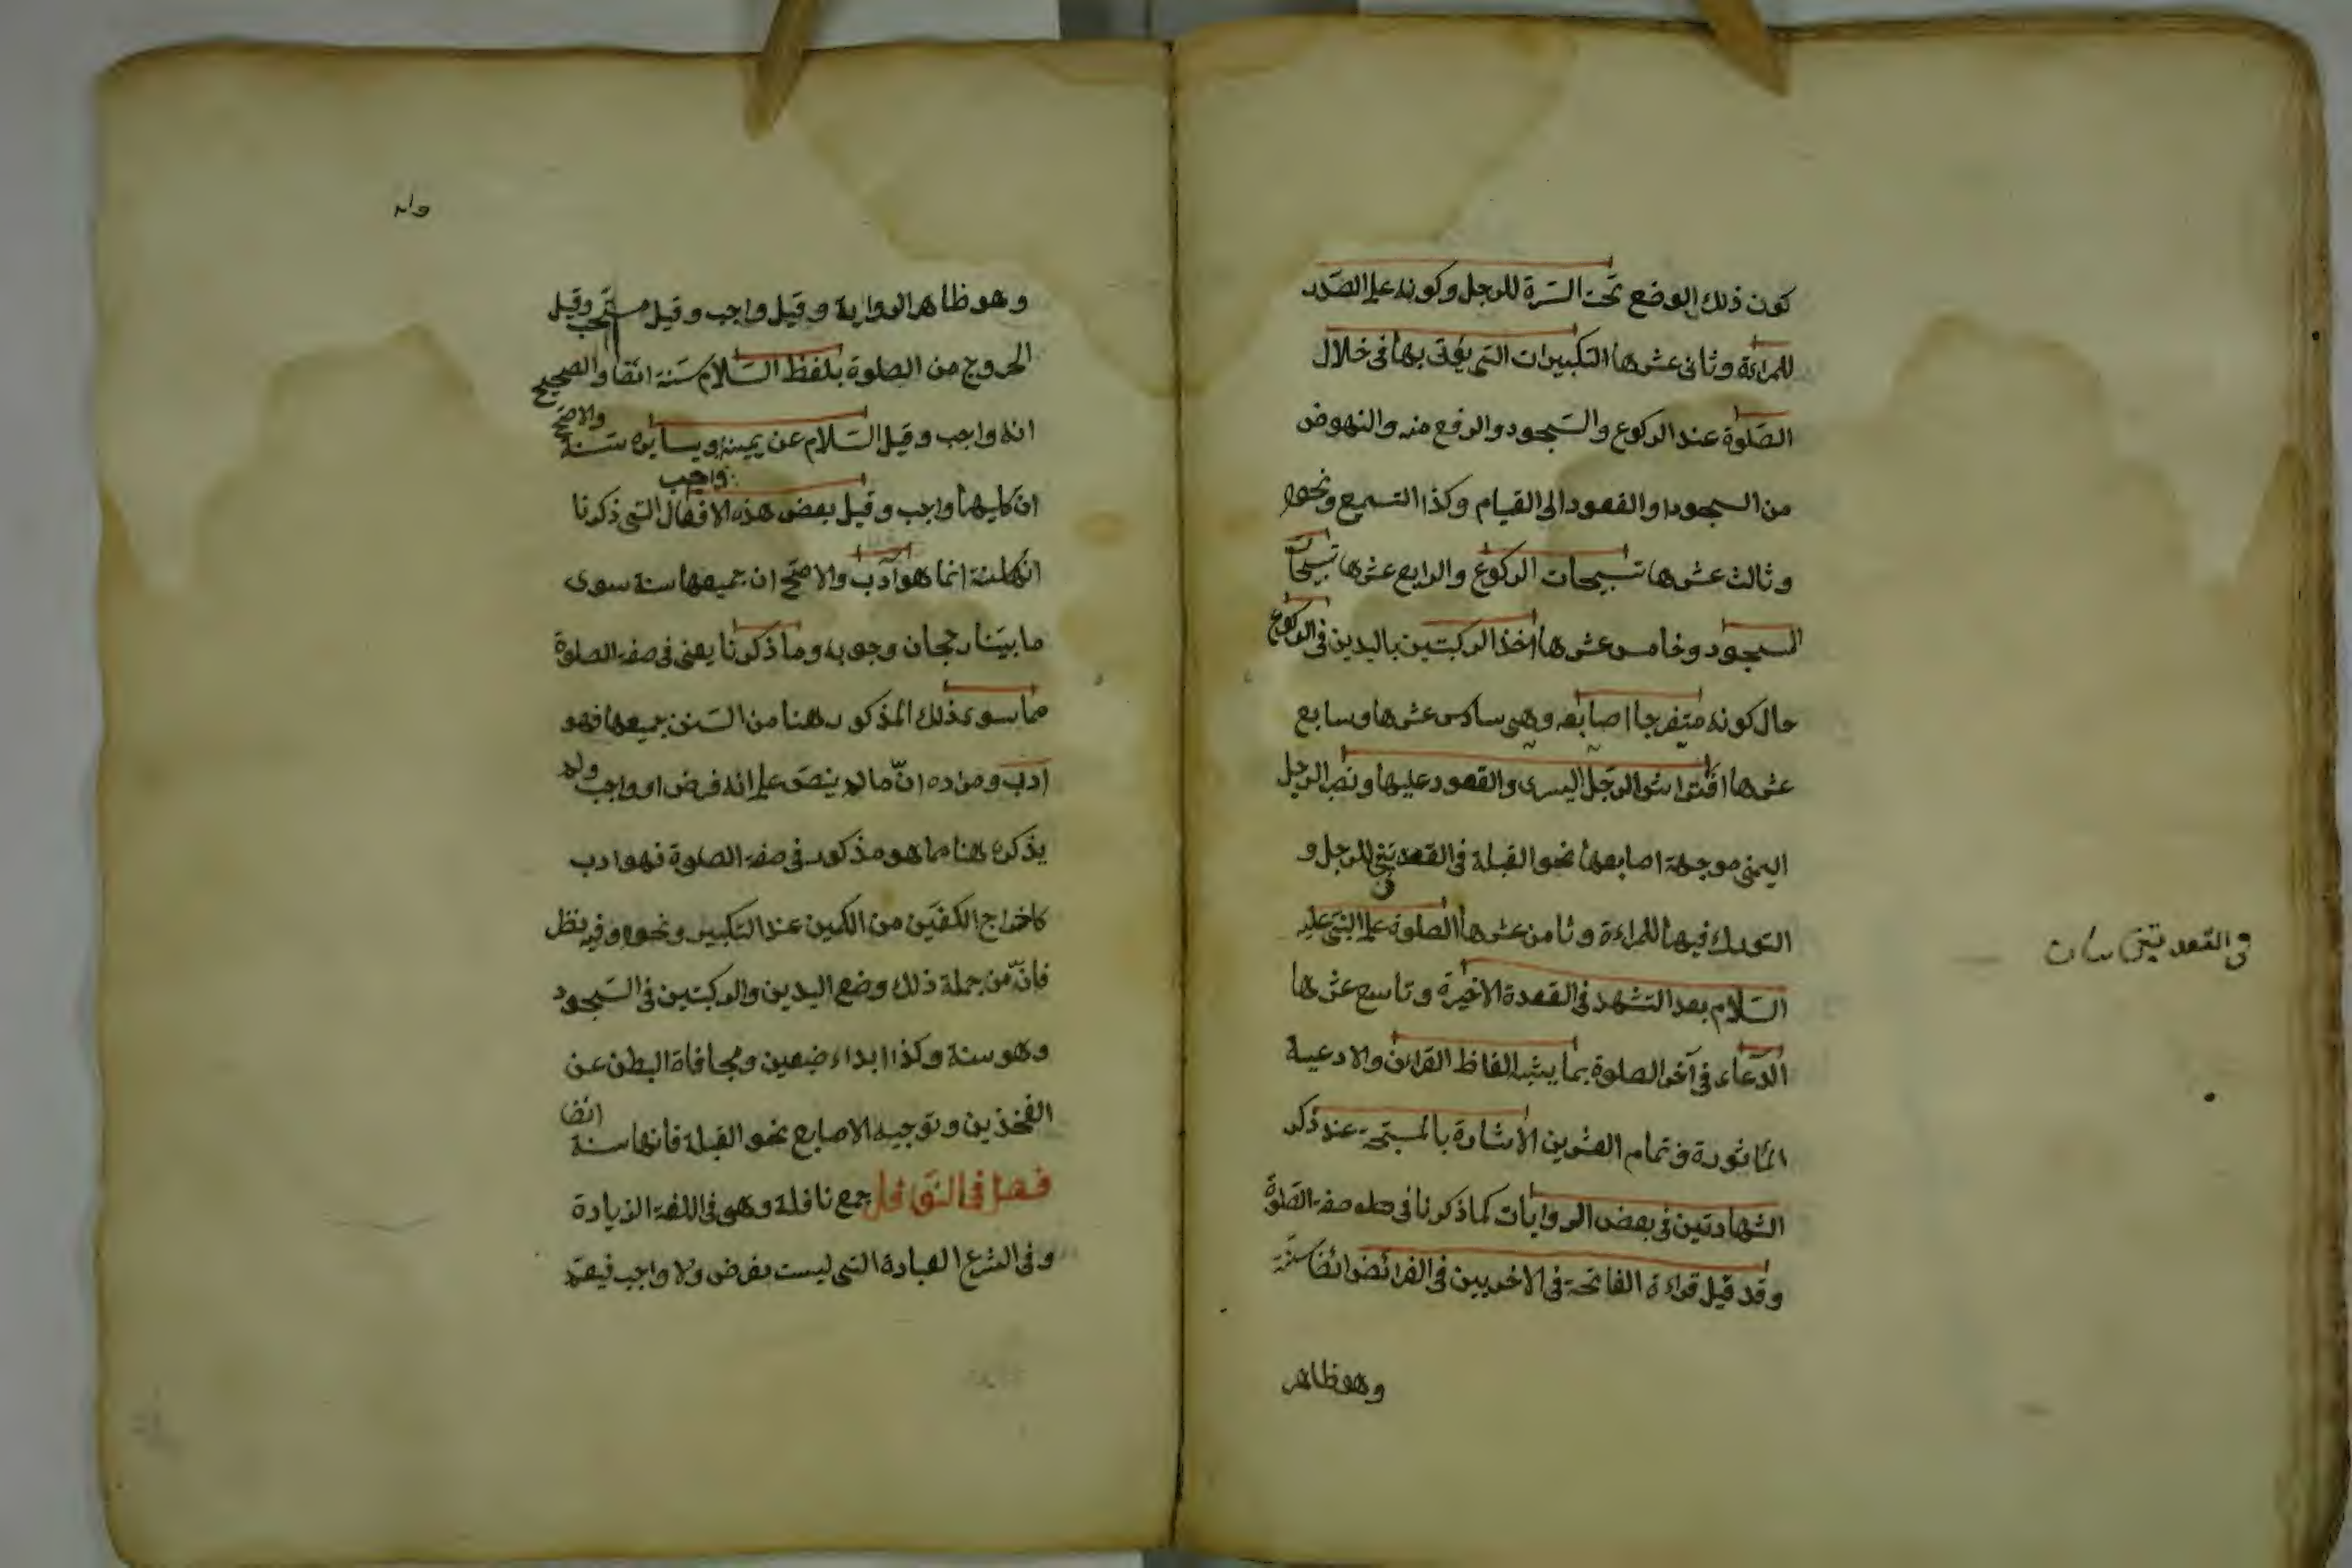 كون ذلك الوضع تحت السّرة للرجل وكونه على الصّدر
للمراءة وثانى عشرها التكبيرات التى يؤتى بها فى خلال
الصّلوة عند الركوع والسّجود والرفع منه والنهوض
من السجود او القعود الى القيام وكذا التسميع ونحوه
وثالث عشرها تسبيحات الركوع والرابع عشرها تسبيحات
السجود وخامس عشرها اخذ الركبتين باليدين فى الركوع
حال كونه متفرجا اصابعه وهى سادس عشرها وسابع
عشرها افتراش الرّجل اليسرى والقعود عليها ونصب الرجل
اليمنى موجهة اصابعها نحو القبلة فى القعدتين للرجل و
التورك فيها للمراءة وثامن عشرها الصلوة على النبىّ عليه
السّلام بعد التشهد فى القعدة الاخيرة وتاسع عشرها
الدّعاء فى آخر الصلوة بما يشبه الفاظ القرائن والادعية
المأثورة وتمام العشرين الاشارة بالمسبّحة عند ذكر
الشهادتين فى بعض الروايات كما ذكرنا فى صفة الصّلوة
وقد قيل قراءة الفاتحة فى الاخريين فى الفرائض ائضا سنّة
وهو ظاهر
فى القعدتين
وهو ظاهر الرواية وقيل واجب وقيل مستحب وقيل
الخروج من الصلوة بلفظ السّلام سنة ائضا والصحيح
انه واجب وقيل السّلام عن يمينه ويساره سنة والاصحّ
ان كليهما واجب وقيل بعض هذه الافعال التى ذكرنا
واجب
انها سنة انما هو أدب والاصحّ ان جميعها سنة سوى
ما بيّنا رجحان وجوبه وما ذكرنا يعنى فى صفة الصلوة
مما سوى ذلك المذكور هنا من السّنن جميعها فهو
ادب ومراده انّ ما لم ينصّ على انه فرض او واجب ولم
يذكره هنا مما هو مذكور فى صفة الصلوة فهو ادب
كاخراج الكفّين من الكمين عند التكبير ونحوه وفيه نظر
فانّ من جملة ذلك وضع اليدين والركبتين فى السّجود
وهو سنة وكذا ابداء ضبعين ومجافاة البطن عن
الفخذين وتوجيه الاصابع نحو القبلة فانها سنة ائضا
فصل فى النّوافل جمع نافلة وهو فى اللغة الزيادة
وفى الشرع العبادة التى ليست بفرض ولا واجب فيعمّ